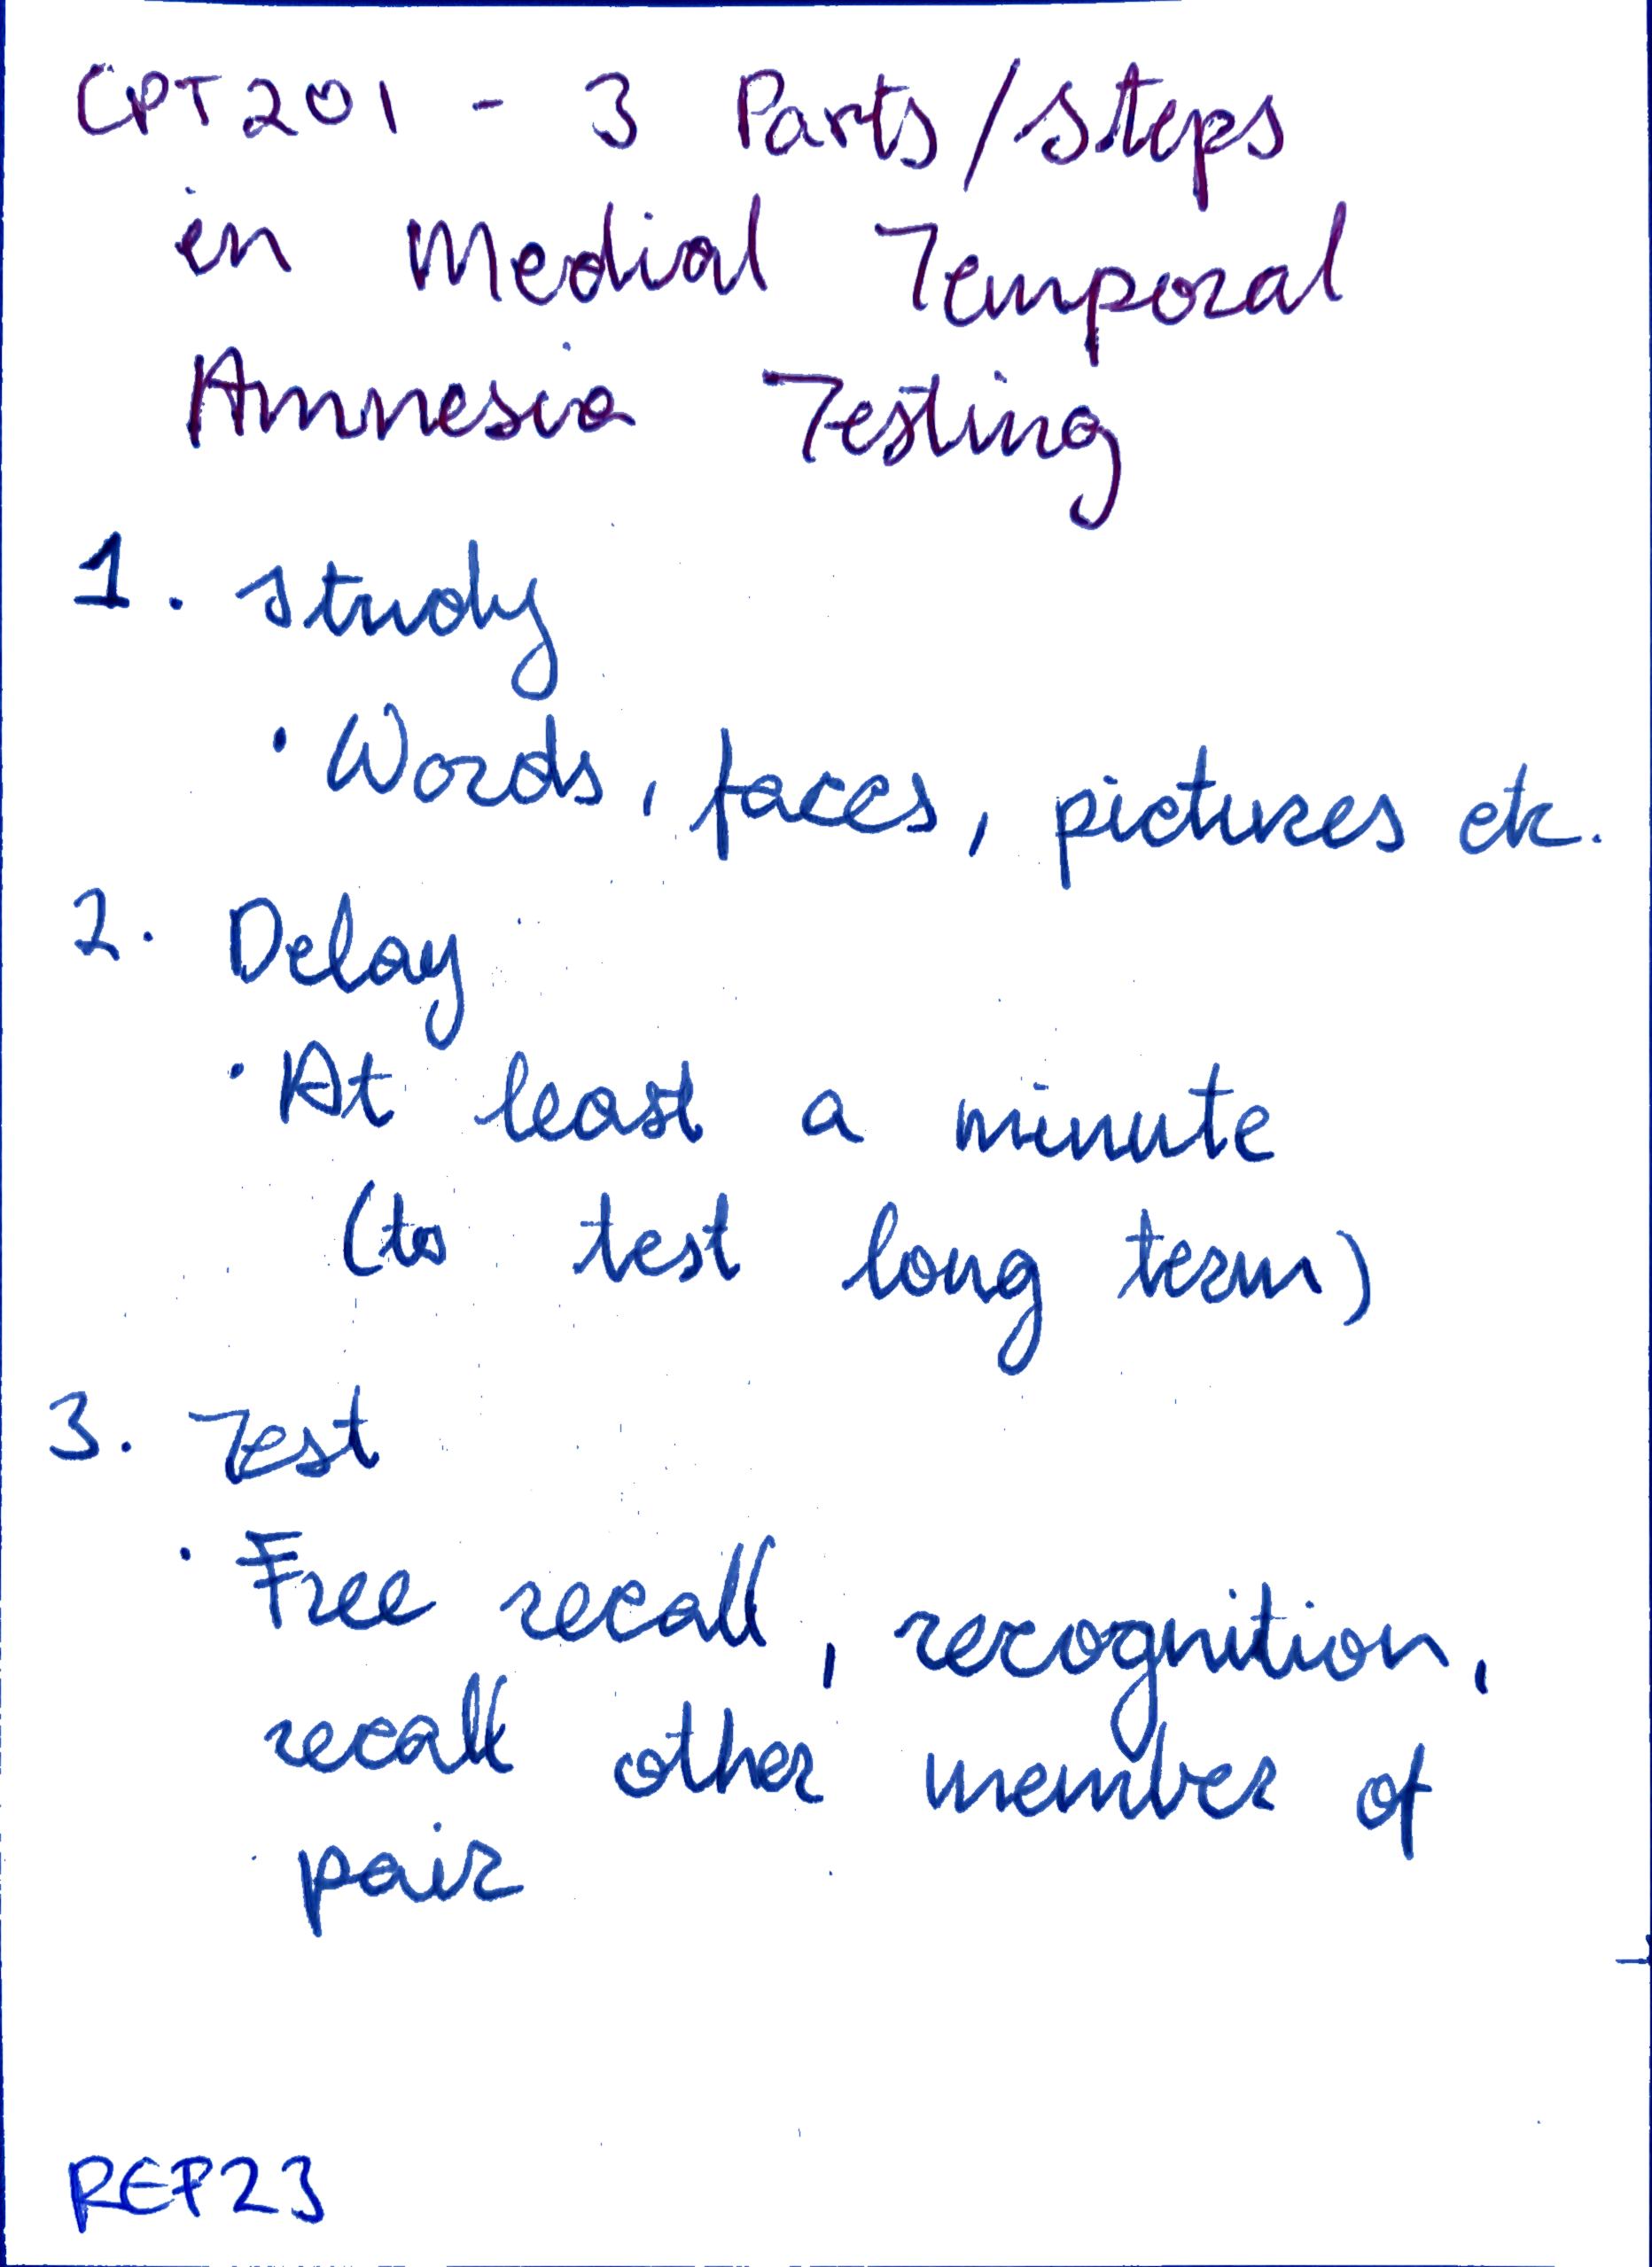 CPT201 - 3 Parts/Steps
in Medial Temporal
Amnesia Testing
1. Study
• Words, faces, pictures etc.
2. Delay
• At least a minute
(to test long term)
3. Test
• Free recall, recognition,
recall other member of
pair
REF23